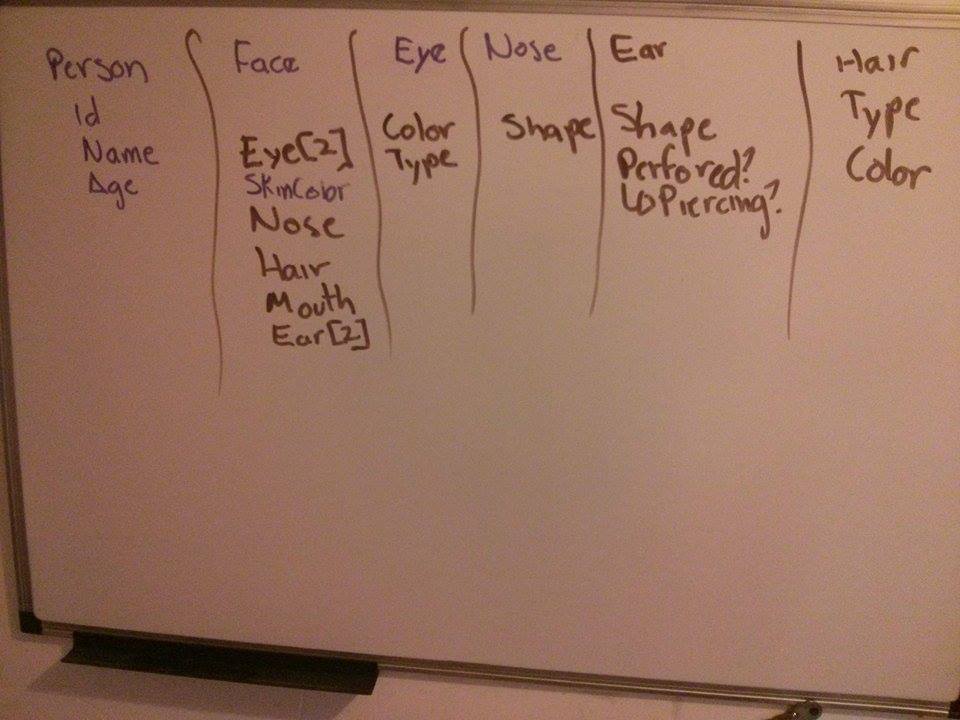 Person
Id
Name
Age
Face
Eye[2]
SkinColor
Nose
Hair
Mouth
Ear[2]
Eye
Color
Type
Nose
Shape
Ear
Shape
Perfored?
↳Piercing?
Hair
Type
Color